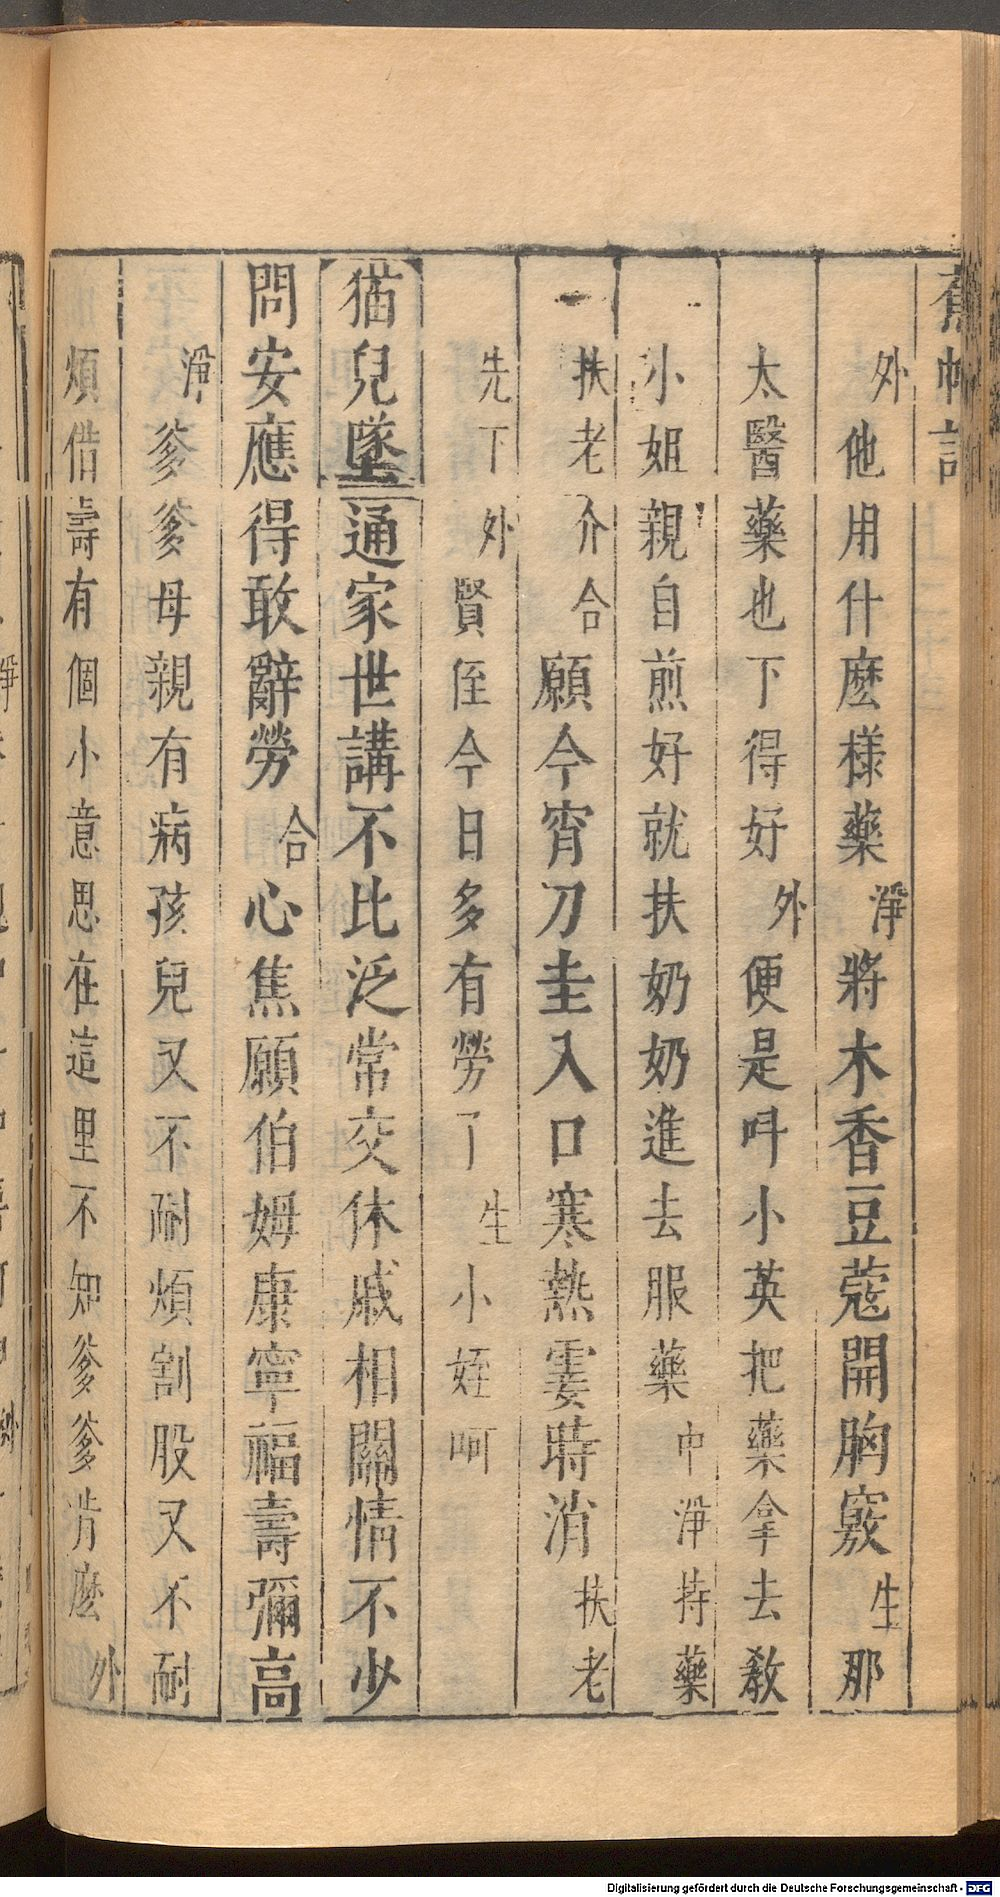 蕉帕記
外他用什麽樣藥淨將木香豆蔻開胸竅生那
太醫藥也下得好外便是呌小英把藥拿去教
小姐親自煎好就扶奶奶進去服藥中淨持藥
扶老介合願今宵刀圭入口寒熱霎時消扶老
先下外賢侄今日多有勞了生小姪呵
猫兒墜通家世講不比泛常交休戚相關情不少
問安應得敢辭勞合心焦願伯姆康寧福壽彌高
淨爹爹母親有病孩兒又不耐煩割股又不耐
煩借壽有個小意思在這里不知爹爹肯麽外
Digitalisierung gefördert durch die Deutsche Forschungsgemeinschaft - DFG